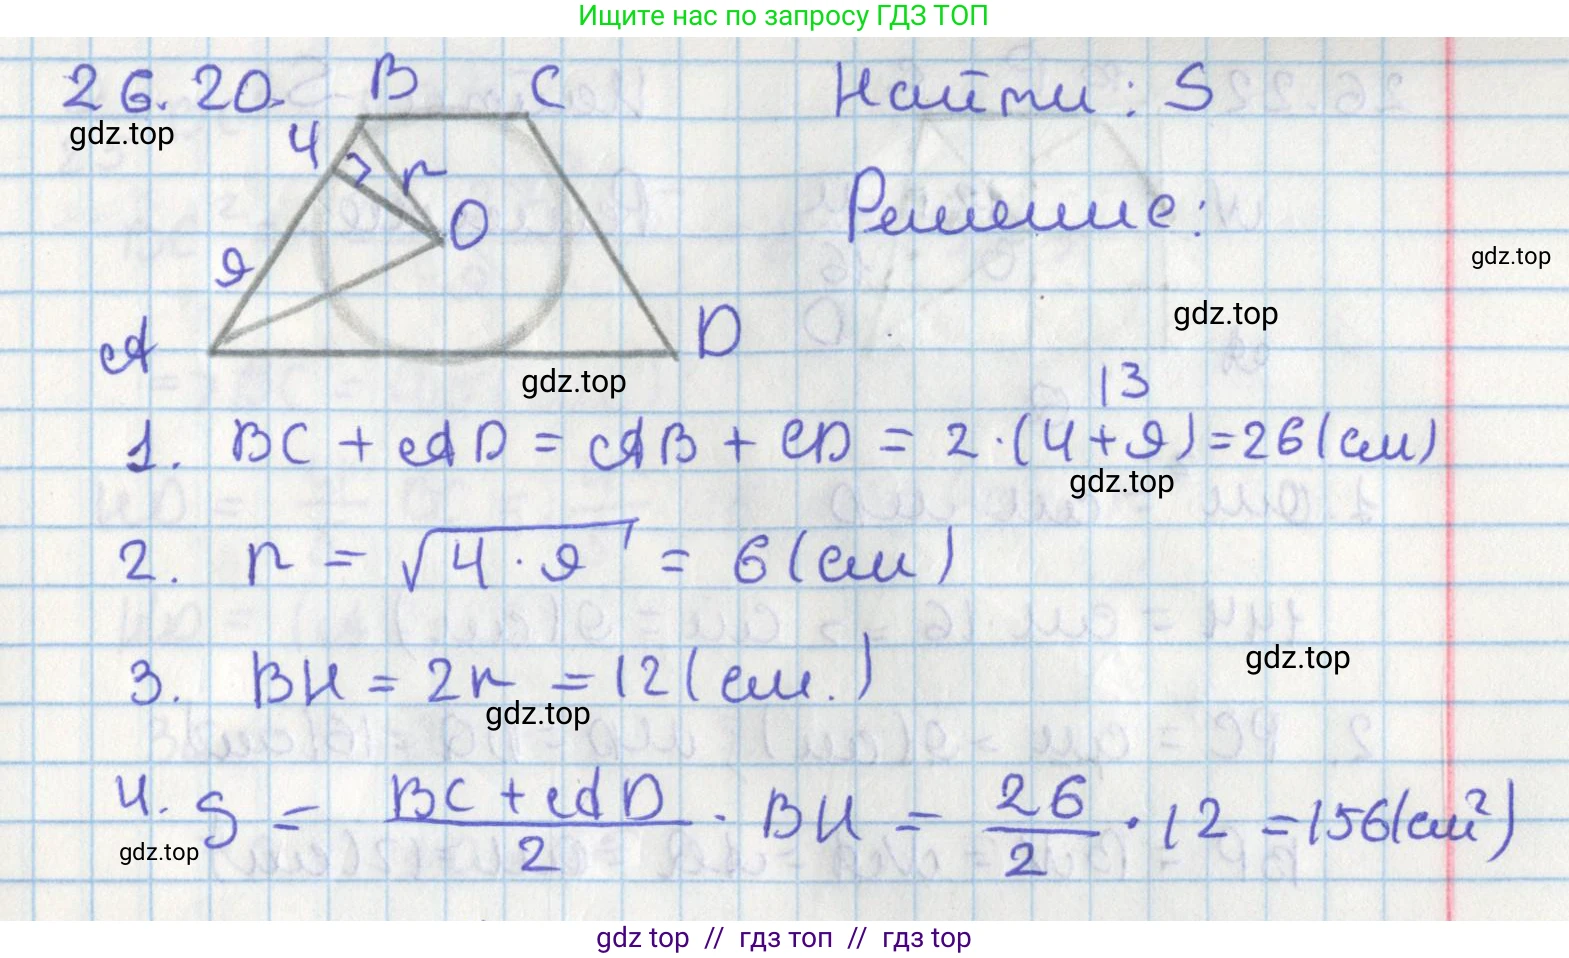 Ищите нас по запросу ГДЗ ТОП
26.20.
B C
Найти: S
gdz.top
4
r
Решение:
O
9
gdz.top
gdz.top
A
D
gdz.top
13
1. BC + AD = AB + CD = 2·(4+9)=26(см)
gdz.top
2. r = √4·9 = 6(см)
gdz.top
3. BH = 2r = 12(см.)
gdz.top
4. S = BC + AD / 2 · BH = 26 / 2 · 12 = 156(см²)
gdz.top
gdz top // гдз топ // гдз top